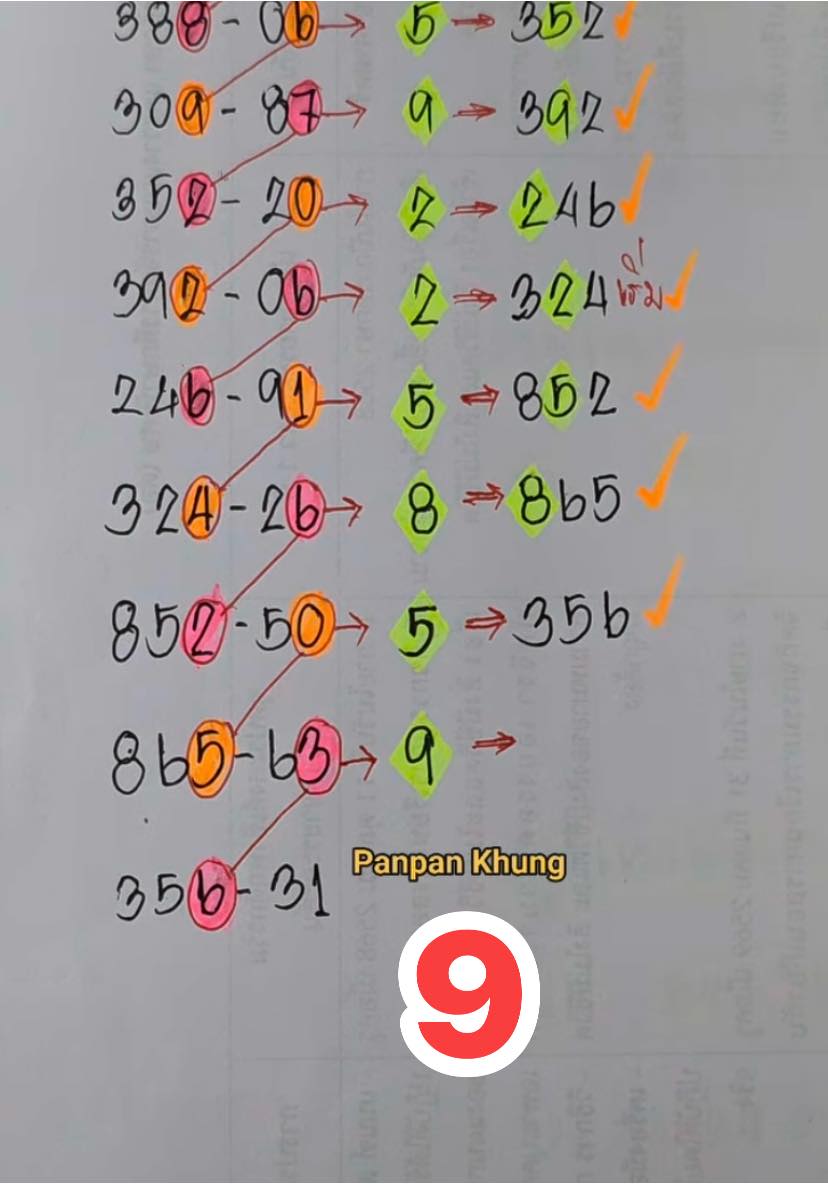 388 - 06 → 5 → 352
309 - 87 → 9 → 392
352 - 20 → 2 → 246
392 - 06 → 2 ⇒ 324 เริ่ม
246 - 91 → 5 ⇒ 852
324 - 26 → 8 ⇒ 865
852 - 50 → 5 ⇒ 356
865 - 63 → 9 ⇒
Panpan Khung
356 - 31
9